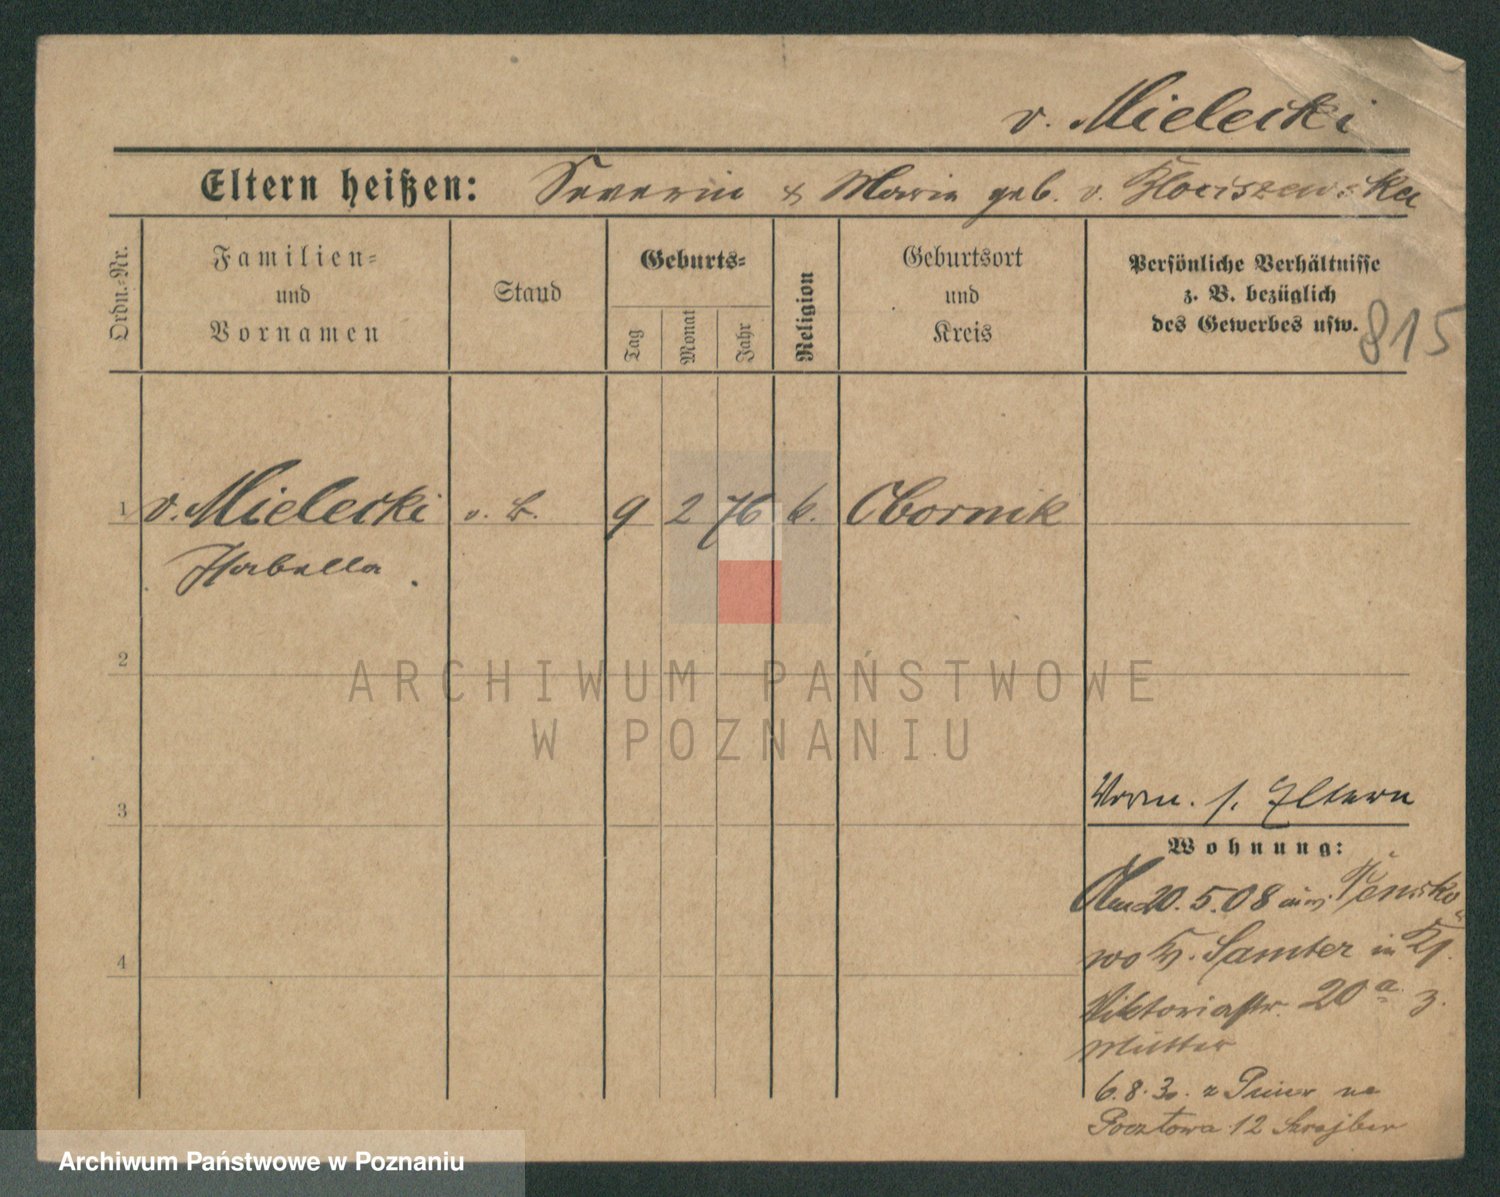 v. Mielecki
Eltern heißen: Severin & Maria geb. v.
Ordn.-Nr.
Familien-
und
Vornamen
Stand
Geburts-
Tag
Monat
Jahr
Religion
Geburtsort
und
Kreis
Persönliche Verhältnisse
z. B. bezüglich
des Gewerbes usw.
815
1 v. Mielecki 9 2 76 k. Obornik
Isabella
2
ARCHIWUM PAŃSTWOWE
W POZNANIU
3
4
Verm. s. Eltern
Wohnung:
20.5.08
wo Kr. Samter in
Viktoriastr. 20a z.
Mutter
6.8.30. z na
Pocztowa 12
Archiwum Państwowe w Poznaniu